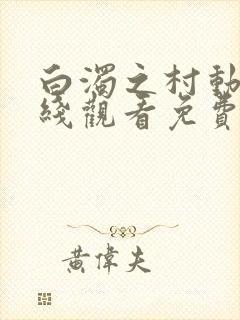 白濁之村動
綫觀看免費
黃偉夫